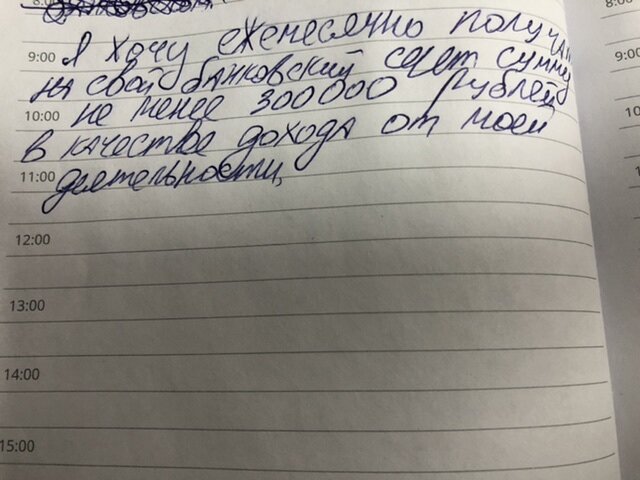 8:00
9:00 Я хочу ежемесячно получать
на свой банковский счет сумму
10:00 не менее 300000 рублей
в качестве дохода от моей
11:00 деятельности,
12:00
13:00
14:00
15:00
8:00
9:00
10
1